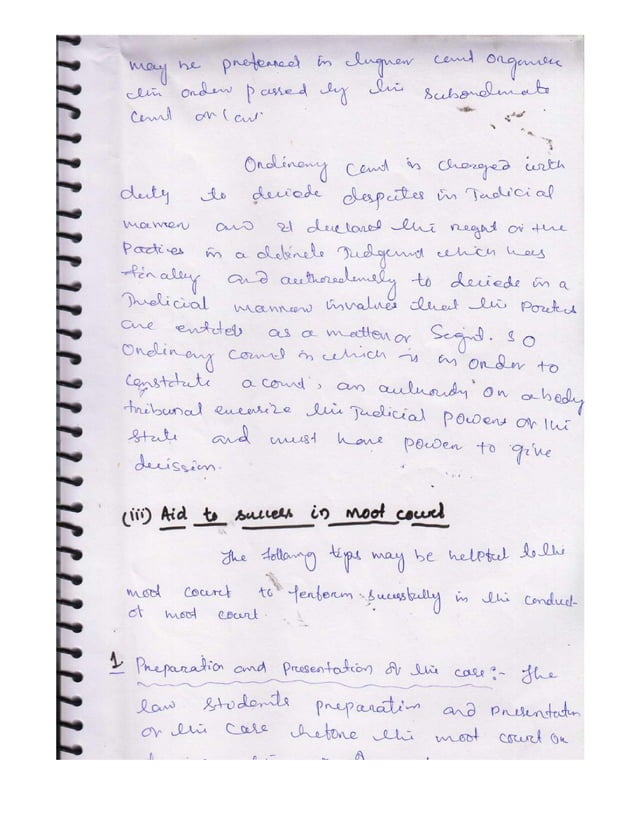 may be preferred in higher court
the order passed by the subordinate
court or law.
Ordinary court is charged with
duty to deciede desputes in Judicial
manner and it declared the right of the
Parties in a definete Judgement which has
finaley and authoredemely to deciede in a
Judicial manner involves that the Parties
are entitele as a matter or . So
Ordinary court is which is in order to
constitute a court, an authority or a body
tribunal excersize the Judicial Powers of the
State and must have power to give
decission.
(iii) Aid to success in moot court
The following tips may be helpful to the
moot court to Perform sucessfully in the conduct
of moot court.
1 Preparation and presentation of the case:- The
law students preparation and presentation
of the Case before the moot court on